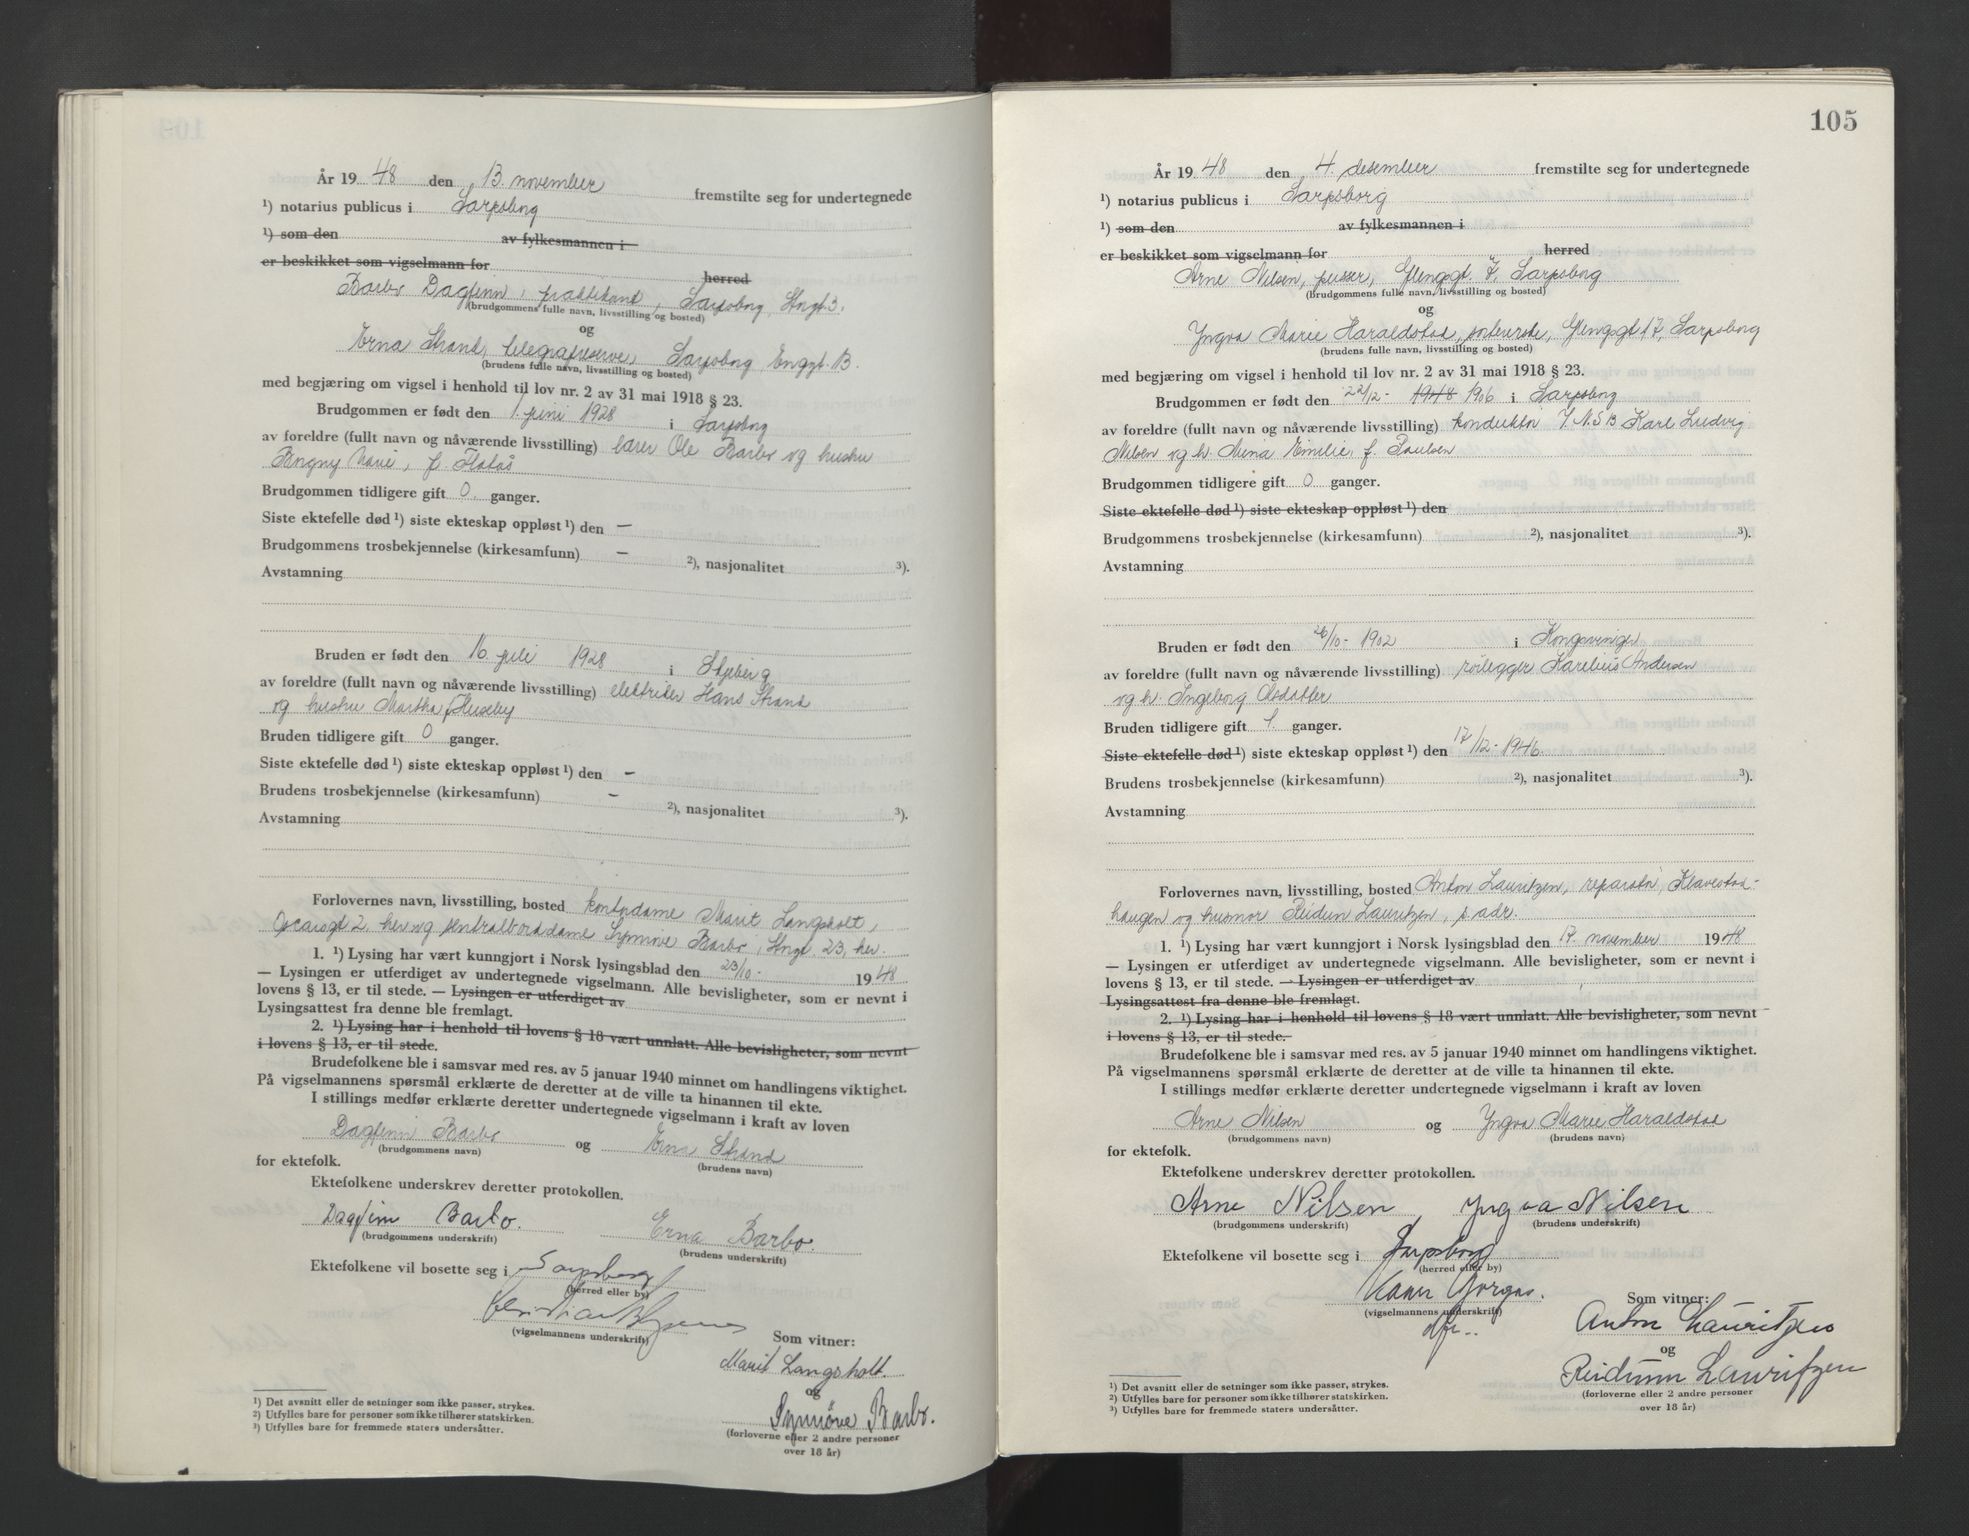 År 19 48 den 13. november fremstilte seg for undertegnede
¹) notarius publicus i Sarpsborg
¹) som den av fylkesmannen i
er beskikket som vigselmann for herred
Barbo Dagfinn, praktikant, Sarpsborg, Stngt. 3.
(brudgommens fulle navn, livsstilling og bosted)
og
Erna Strand, telegrafreserve, Sarpsborg, Enggt. 13.
(brudens fulle navn, livsstilling og bosted)
med begjæring om vigsel i henhold til lov nr. 2 av 31 mai 1918 § 23.
Brudgommen er født den 1. juni 1928 i Sarpsborg
av foreldre (fullt navn og nåværende livsstilling) lærer Ole Barbo og hustru
Borgny Marie, f. Flatås
Brudgommen tidligere gift 0 ganger.
Siste ektefelle død ¹) siste ekteskap oppløst ¹) den —
Brudgommens trosbekjennelse (kirkesamfunn) — ²), nasjonalitet ³).
Avstamning
Bruden er født den 16. juli 1928 i Skjeberg
av foreldre (fullt navn og nåværende livsstilling) elektriker Hans Strand
og hustru Martha f. Huseby
Bruden tidligere gift 0 ganger.
Siste ektefelle død ¹) siste ekteskap oppløst ¹) den —
Brudens trosbekjennelse (kirkesamfunn) — ²), nasjonalitet ³).
Avstamning
Forlovernes navn, livsstilling, bosted kontordame Marit Langsholt,
Oscarsgt 2, her og sentralborddame Synnøve Barbo, Stngt. 23, her.
1. ¹) Lysing har vært kunngjort i Norsk lysingsblad den 23/10- 1948
— Lysingen er utferdiget av undertegnede vigselmann. Alle bevisligheter, som er nevnt i
lovens § 13, er til stede. — Lysingen er utferdiget av
Lysingsattest fra denne ble fremlagt.
2. ¹) Lysing har i henhold til lovens § 18 vært unnlatt. Alle bevisligheter, som nevnt
i lovens § 13, er til stede.
Brudefolkene ble i samsvar med res. av 5 januar 1940 minnet om handlingens viktighet.
På vigselmannens spørsmål erklærte de deretter at de ville ta hinannen til ekte.
I stillings medfør erklærte deretter undertegnede vigselmann i kraft av loven
Dagfinn Barbo og Erna Strand
(brudgommens navn) (brudens navn)
for ektefolk.
Ektefolkene underskrev deretter protokollen.
Dagfinn Barbo. Erna Barbo.
(brudgommens underskrift) (brudens underskrift)
Ektefolkene vil bosette seg i Sarpsborg
(herred eller by)
(vigselmannens underskrift)
Som vitner:
Marit Langsholt.
og
Synnøve Barbo.
(forloverne eller 2 andre personer
over 18 år)
¹) Det avsnitt eller de setninger som ikke passer, strykes.
²) Utfylles bare for personer som ikke tilhører statskirken.
³) Utfylles bare for fremmede staters undersåtter.
105
År 19 48 den 4. desember fremstilte seg for undertegnede
¹) notarius publicus i Sarpsborg
¹) som den av fylkesmannen i
er beskikket som vigselmann for herred
Arne Nilsen, pusser, Glengsgt. 17, Sarpsborg
(brudgommens fulle navn, livsstilling og bosted)
og
Yngva Marie Haraldstad, sorterske, Glengsgt 17, Sarpsborg
(brudens fulle navn, livsstilling og bosted)
med begjæring om vigsel i henhold til lov nr. 2 av 31 mai 1918 § 23.
Brudgommen er født den 22/12- 1948 1906 i Sarpsborg
av foreldre (fullt navn og nåværende livsstilling) konduktør v/ N.S B Karl Ludvig
Nilsen og h. Mina Emilie, f. Paulsen
Brudgommen tidligere gift 0 ganger.
Siste ektefelle død ¹) siste ekteskap oppløst ¹) den
Brudgommens trosbekjennelse (kirkesamfunn) ²), nasjonalitet ³).
Avstamning
Bruden er født den 26/10- 1902 i Kongsvinger
av foreldre (fullt navn og nåværende livsstilling) rørlegger Karelius Andersen
og h. Ingeborg Olsdatter
Bruden tidligere gift 1. ganger.
Siste ektefelle død ¹) siste ekteskap oppløst ¹) den 17/12- 1946.
Brudens trosbekjennelse (kirkesamfunn) ²), nasjonalitet ³).
Avstamning
Forlovernes navn, livsstilling, bosted Anton Lauritzen, reparatør, Klavestad-
haugen og husmor Reidun Lauritzen, s. adr.
1. ¹) Lysing har vært kunngjort i Norsk lysingsblad den 17. november 1948
— Lysingen er utferdiget av undertegnede vigselmann. Alle bevisligheter, som er nevnt i
lovens § 13, er til stede. — Lysingen er utferdiget av
Lysingsattest fra denne ble fremlagt.
2. ¹) Lysing har i henhold til lovens § 18 vært unnlatt. Alle bevisligheter, som nevnt
i lovens § 13, er til stede.
Brudefolkene ble i samsvar med res. av 5 januar 1940 minnet om handlingens viktighet.
På vigselmannens spørsmål erklærte de deretter at de ville ta hinannen til ekte.
I stillings medfør erklærte deretter undertegnede vigselmann i kraft av loven
Arne Nilsen og Yngva Marie Haraldstad
(brudgommens navn) (brudens navn)
for ektefolk.
Ektefolkene underskrev deretter protokollen.
Arne Nilsen Yngva Nilsen
(brudgommens underskrift) (brudens underskrift)
Ektefolkene vil bosette seg i Sarpsborg
(herred eller by)
(vigselmannens underskrift)
Som vitner:
Anton Lauritzen
og
Reidunn Lauritzen
(forloverne eller 2 andre personer
over 18 år)
¹) Det avsnitt eller de setninger som ikke passer, strykes.
²) Utfylles bare for personer som ikke tilhører statskirken.
³) Utfylles bare for fremmede staters undersåtter.